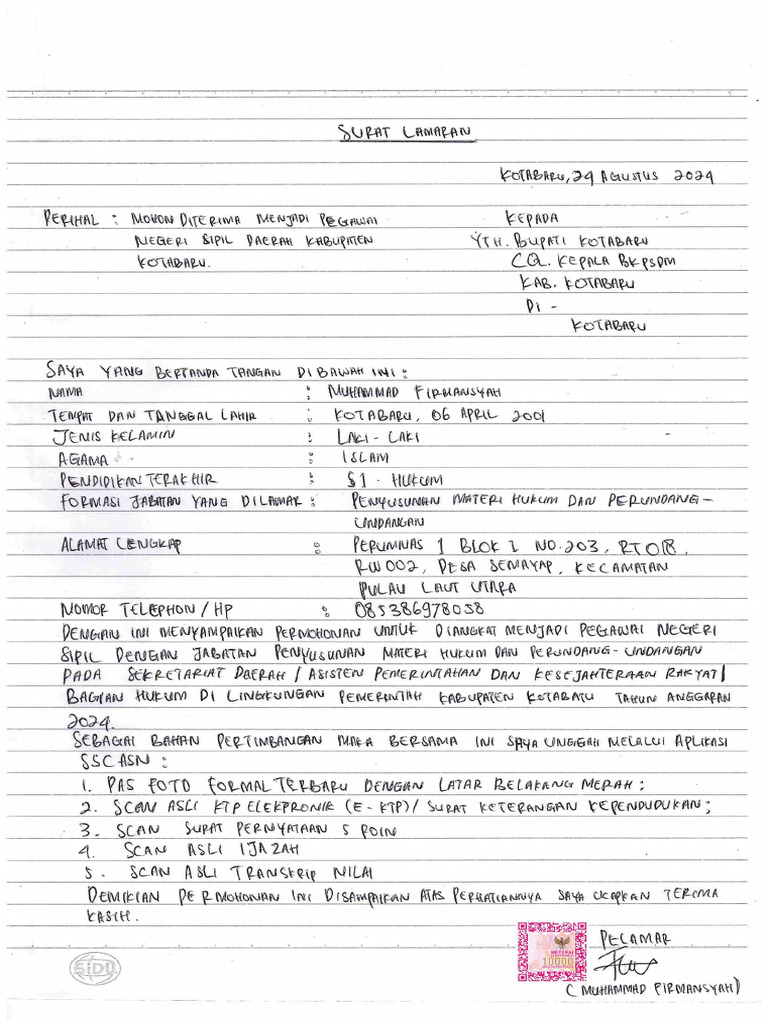 SURAT LAMARAN
KOTABARU, 24 AGUSTUS 2024
PERIHAL : MOHON DITERIMA MENJADI PEGAWAI
NEGERI SIPIL DAERAH KABUPATEN
KOTABARU.
KEPADA
YTH. BUPATI KOTABARU
CQ. KEPALA BKPSDM
KAB. KOTABARU
DI -
KOTABARU
SAYA YANG BERTANDA TANGAN DIBAWAH INI :
NAMA : MUHAMMAD FIRMANSYAH
TEMPAT DAN TANGGAL LAHIR : KOTABARU, 06 APRIL 2001
JENIS KELAMIN : LAKI - LAKI
AGAMA : ISLAM
PENDIDIKAN TERAKHIR : S1 - HUKUM
FORMASI JABATAN YANG DILAMAR : PENYUSUNAN MATERI HUKUM DAN PERUNDANG-
UNDANGAN
ALAMAT LENGKAP : PERUMNAS 1 BLOK I NO.203, RT018,
RW002, DESA SEMAYAP, KECAMATAN
PULAU LAUT UTARA
NOMOR TELEPHON / HP : 085386978058
DENGAN INI MENYAMPAIKAN PERMOHONAN UNTUK DIANGKAT MENJADI PEGAWAI NEGERI
SIPIL DENGAN JABATAN PENYUSUNAN MATERI HUKUM DAN PERUNDANG-UNDANGAN
PADA SEKRETARIAT DAERAH / ASISTEN PEMERINTAHAN DAN KESEJAHTERAAN RAKYAT/
BAGIAN HUKUM DI LINGKUNGAN PEMERINTAH KABUPATEN KOTABATU TAHUN ANGGARAN
2024.
SEBAGAI BAHAN PERTIMBANGAN MAKA BERSAMA INI SAYA UNGGAH MELALUI APLIKASI
SSCASN :
1. PAS FOTO FORMAL TERBARU DENGAN LATAR BELAKANG MERAH ;
2. SCAN ASLI KTP ELEKTRONIK (E - KTP) / SURAT KETERANGAN KEPENDUDUKAN ;
3. SCAN SURAT PERNYATAAN 5 POIN
4. SCAN ASLI IJAZAH
5. SCAN ASLI TRANSKRIP NILAI
DEMIKIAN PERMOHONAN INI DISAMPAIKAN ATAS PERHATIANNYA SAYA UCAPKAN TERIMA
KASIH.
PELAMAR
10000
(MUHAMMAD FIRMANSYAH)
SIDU